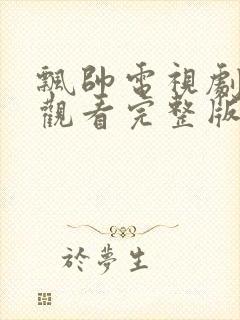 飄帥電視劇
觀看完整版
於夢生